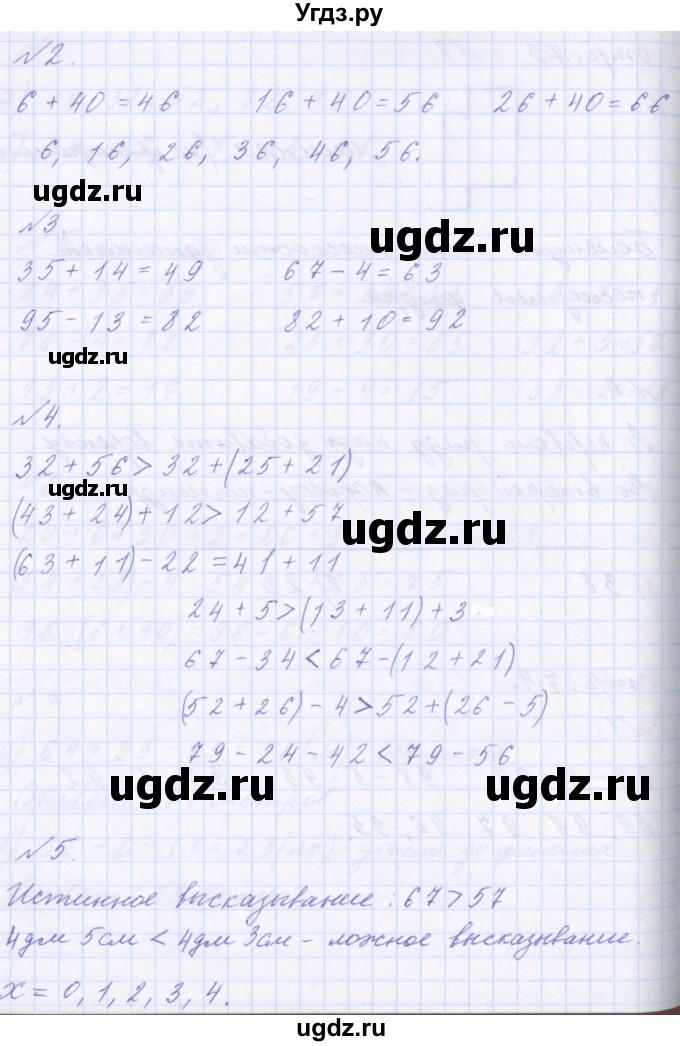 Угдз.ру
№2.
6 + 40 = 46 16 + 40 = 56 26 + 40 = 66
6, 16, 26, 36, 46, 56.
ugdz.ru
ugdz.ru
№3.
35 + 14 = 49 67 - 4 = 63
95 - 13 = 82 82 + 10 = 92
ugdz.ru
№4.
32 + 56 > 32 + (25 + 21)
ugdz.ru
(43 + 24) + 12 > 12 + 57
ugdz.ru
(63 + 11) - 22 = 41 + 11
24 + 5 > (13 + 11) + 3
67 - 34 < 67 - (12 + 21)
(52 + 26) - 4 > 52 + (26 - 5)
79 - 24 - 42 < 79 - 56
ugdz.ru
ugdz.ru
№5.
Истинное высказывание: 67 > 57
4дм 5см < 4дм 3см - ложное высказывание.
x = 0, 1, 2, 3, 4.
ugdz.ru